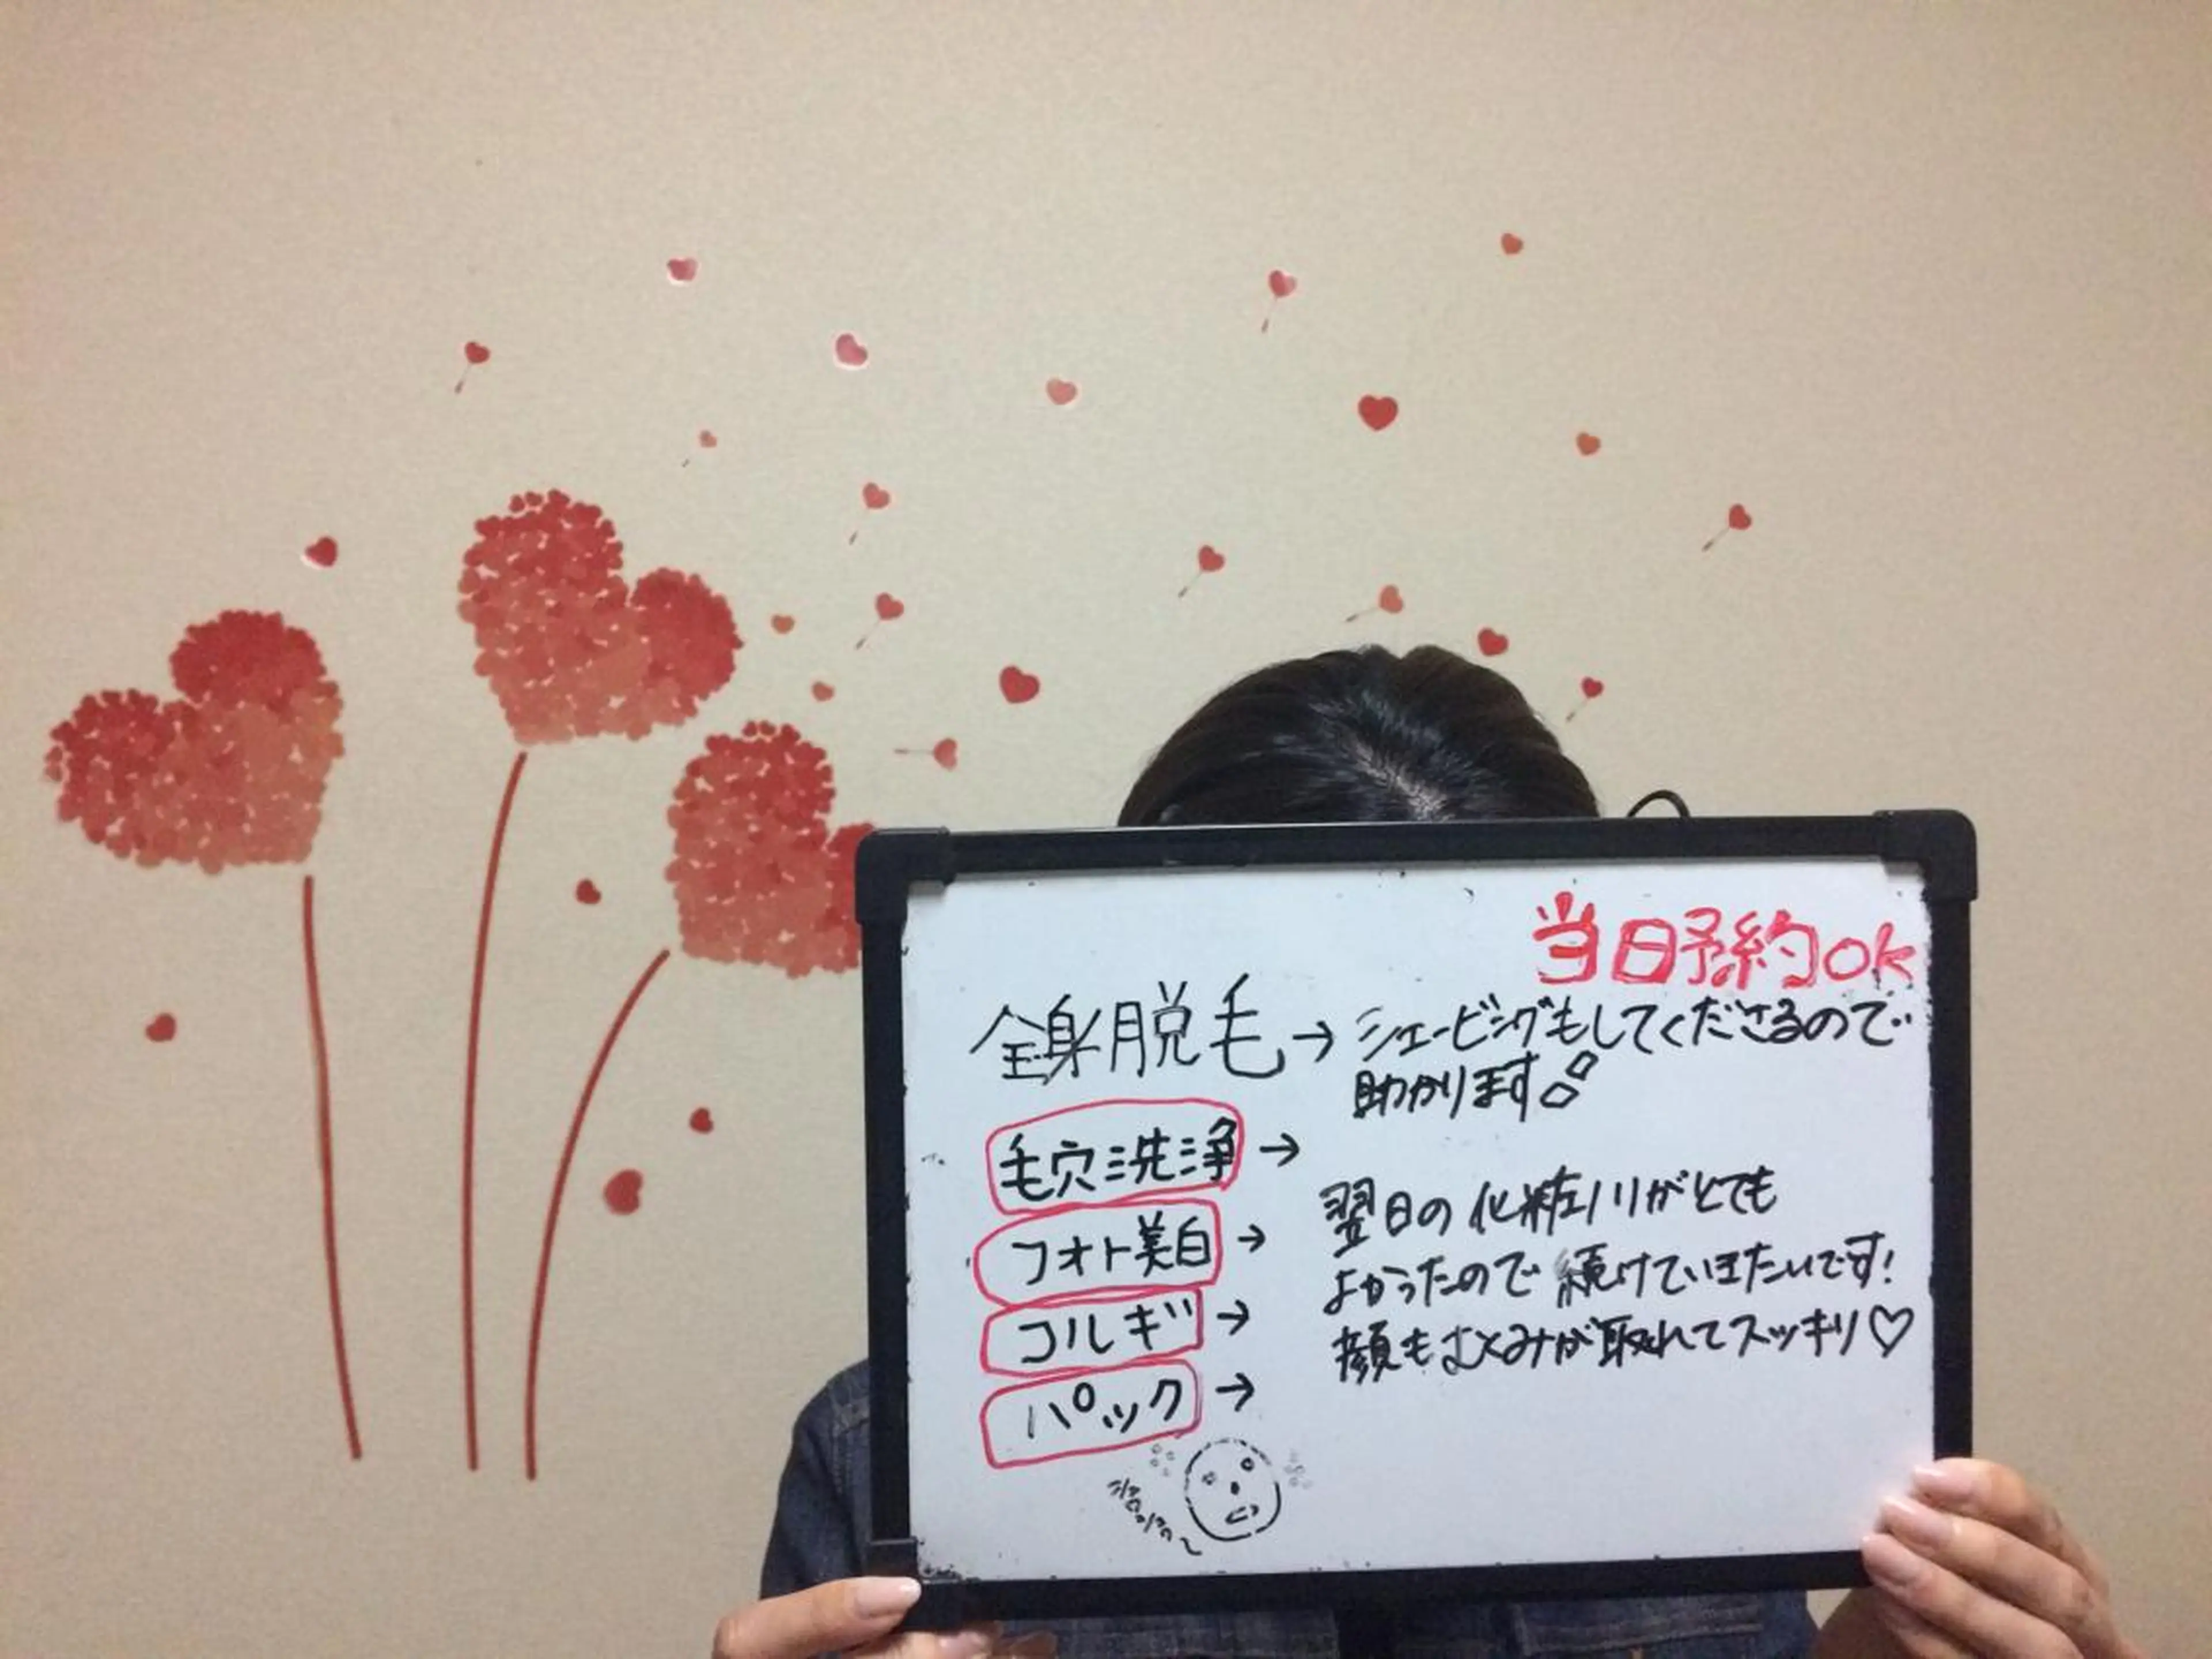 当日予約ok
全身脱毛→シェービングもしてくださるので
助かります
毛穴洗浄→
フォト美白→
コルギ→
パック→
翌日の化粧ノリがとても
よかったので続けていきたいです!
顔もむくみが取れてスッキリ♡